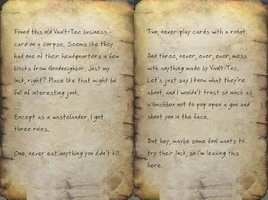 Found this old Vault-Tec business
card on a corpse. Seems like they
had one of their headquarters a few
blocks from Goodneighbor. Just my
luck, right? Place like that might be
full of interesting junk.
Except as a wastelander, I got
three rules.
One, never eat anything you didn't kill.
Two, never play cards with a robot.
And three, never, ever, ever, mess
with anything made by Vault-Tec.
Let's just say I know what they're
about, and I wouldn't trust so much as
a lunchbox not to pop open a gun and
shoot you in the face.
But hey, maybe some fool wants to
try their luck, so I'm leaving this
here.